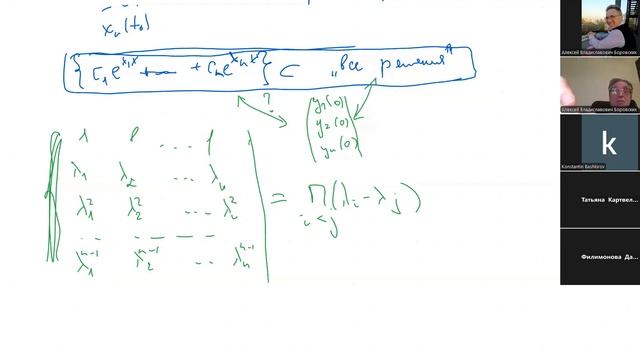 xₙ(t₀)
{C₁e^{λ₁x} + — + Cₙe^{λₙx}} ⊂ „все решения"
?
y₁(0)
y₂(0)
yₙ(0)
1 1 ... 1
λ₁ λ₂ ... λₙ
λ₁² λ₂² ... λₙ² = Π(λᵢ - λⱼ)
i<j
λ₁ⁿ⁻¹ λ₂ⁿ⁻¹ .. λₙⁿ⁻¹
Алексей Владиславович Боровских
Алексей Владиславович Боровских
k
Konstantin Bashkirov
Татьяна Картвел...
Филимонова Да...